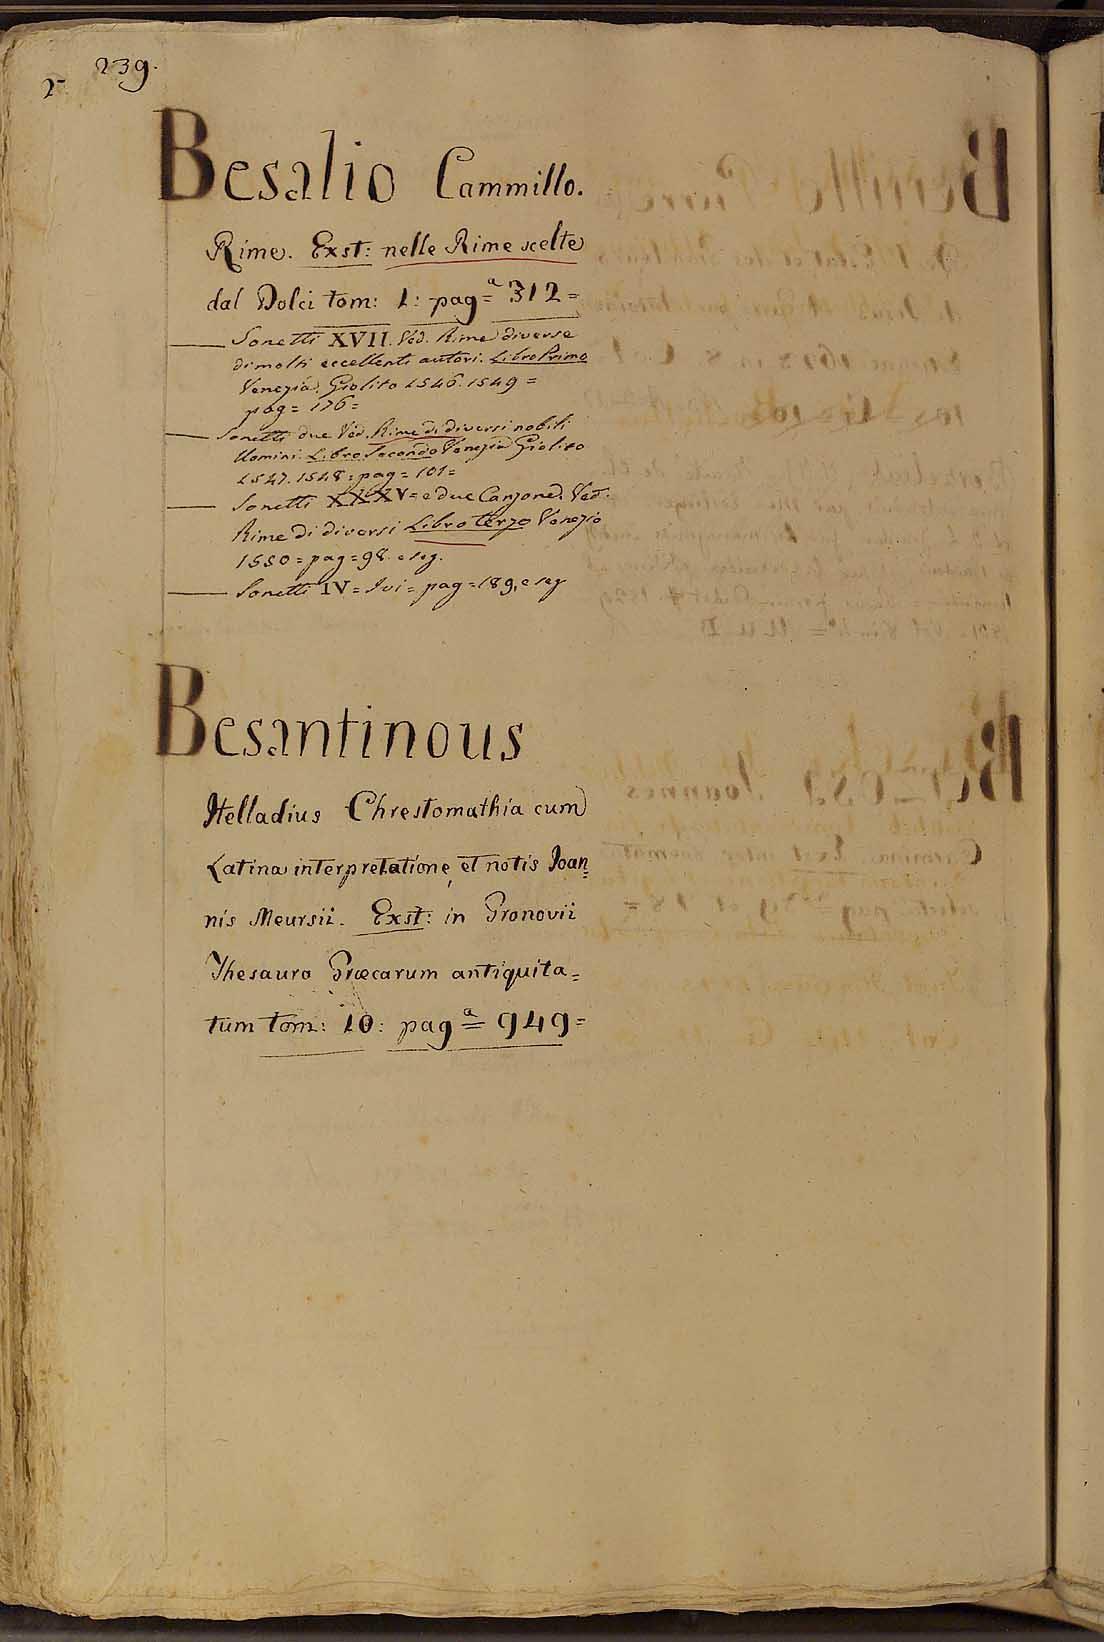 239.
2
Besalio Cammillo.
Rime. Exst: nelle Rime scelte
dal Dolci tom: 1: pag=ª 312=
Sonetti XVII. Ved. Rime diverse
di molti eccellenti autori. Libro Primo
Venezia. Giolito 1546. 1549=
pag= 176=
Sonetti due Ved. Rime di diversi nobili
Uomini. Libro Secondo Venezia Giolito
1547. 1548= pag= 101=
Sonetti XXXV= e due Canzone. Ved.
Rime di diversi Libro terzo Venezia
1550= pag= 98. e seg.
Sonetti IV= Ivi= pag= 189, e seg
Besantinous
Helladius Chrestomathia cum
Latina interpretatione, et notis Joan=
nis Meursii. Exst: in Gronovii
Thesauro Græcarum antiquita=
tum tom: 10: pag=ª 949=